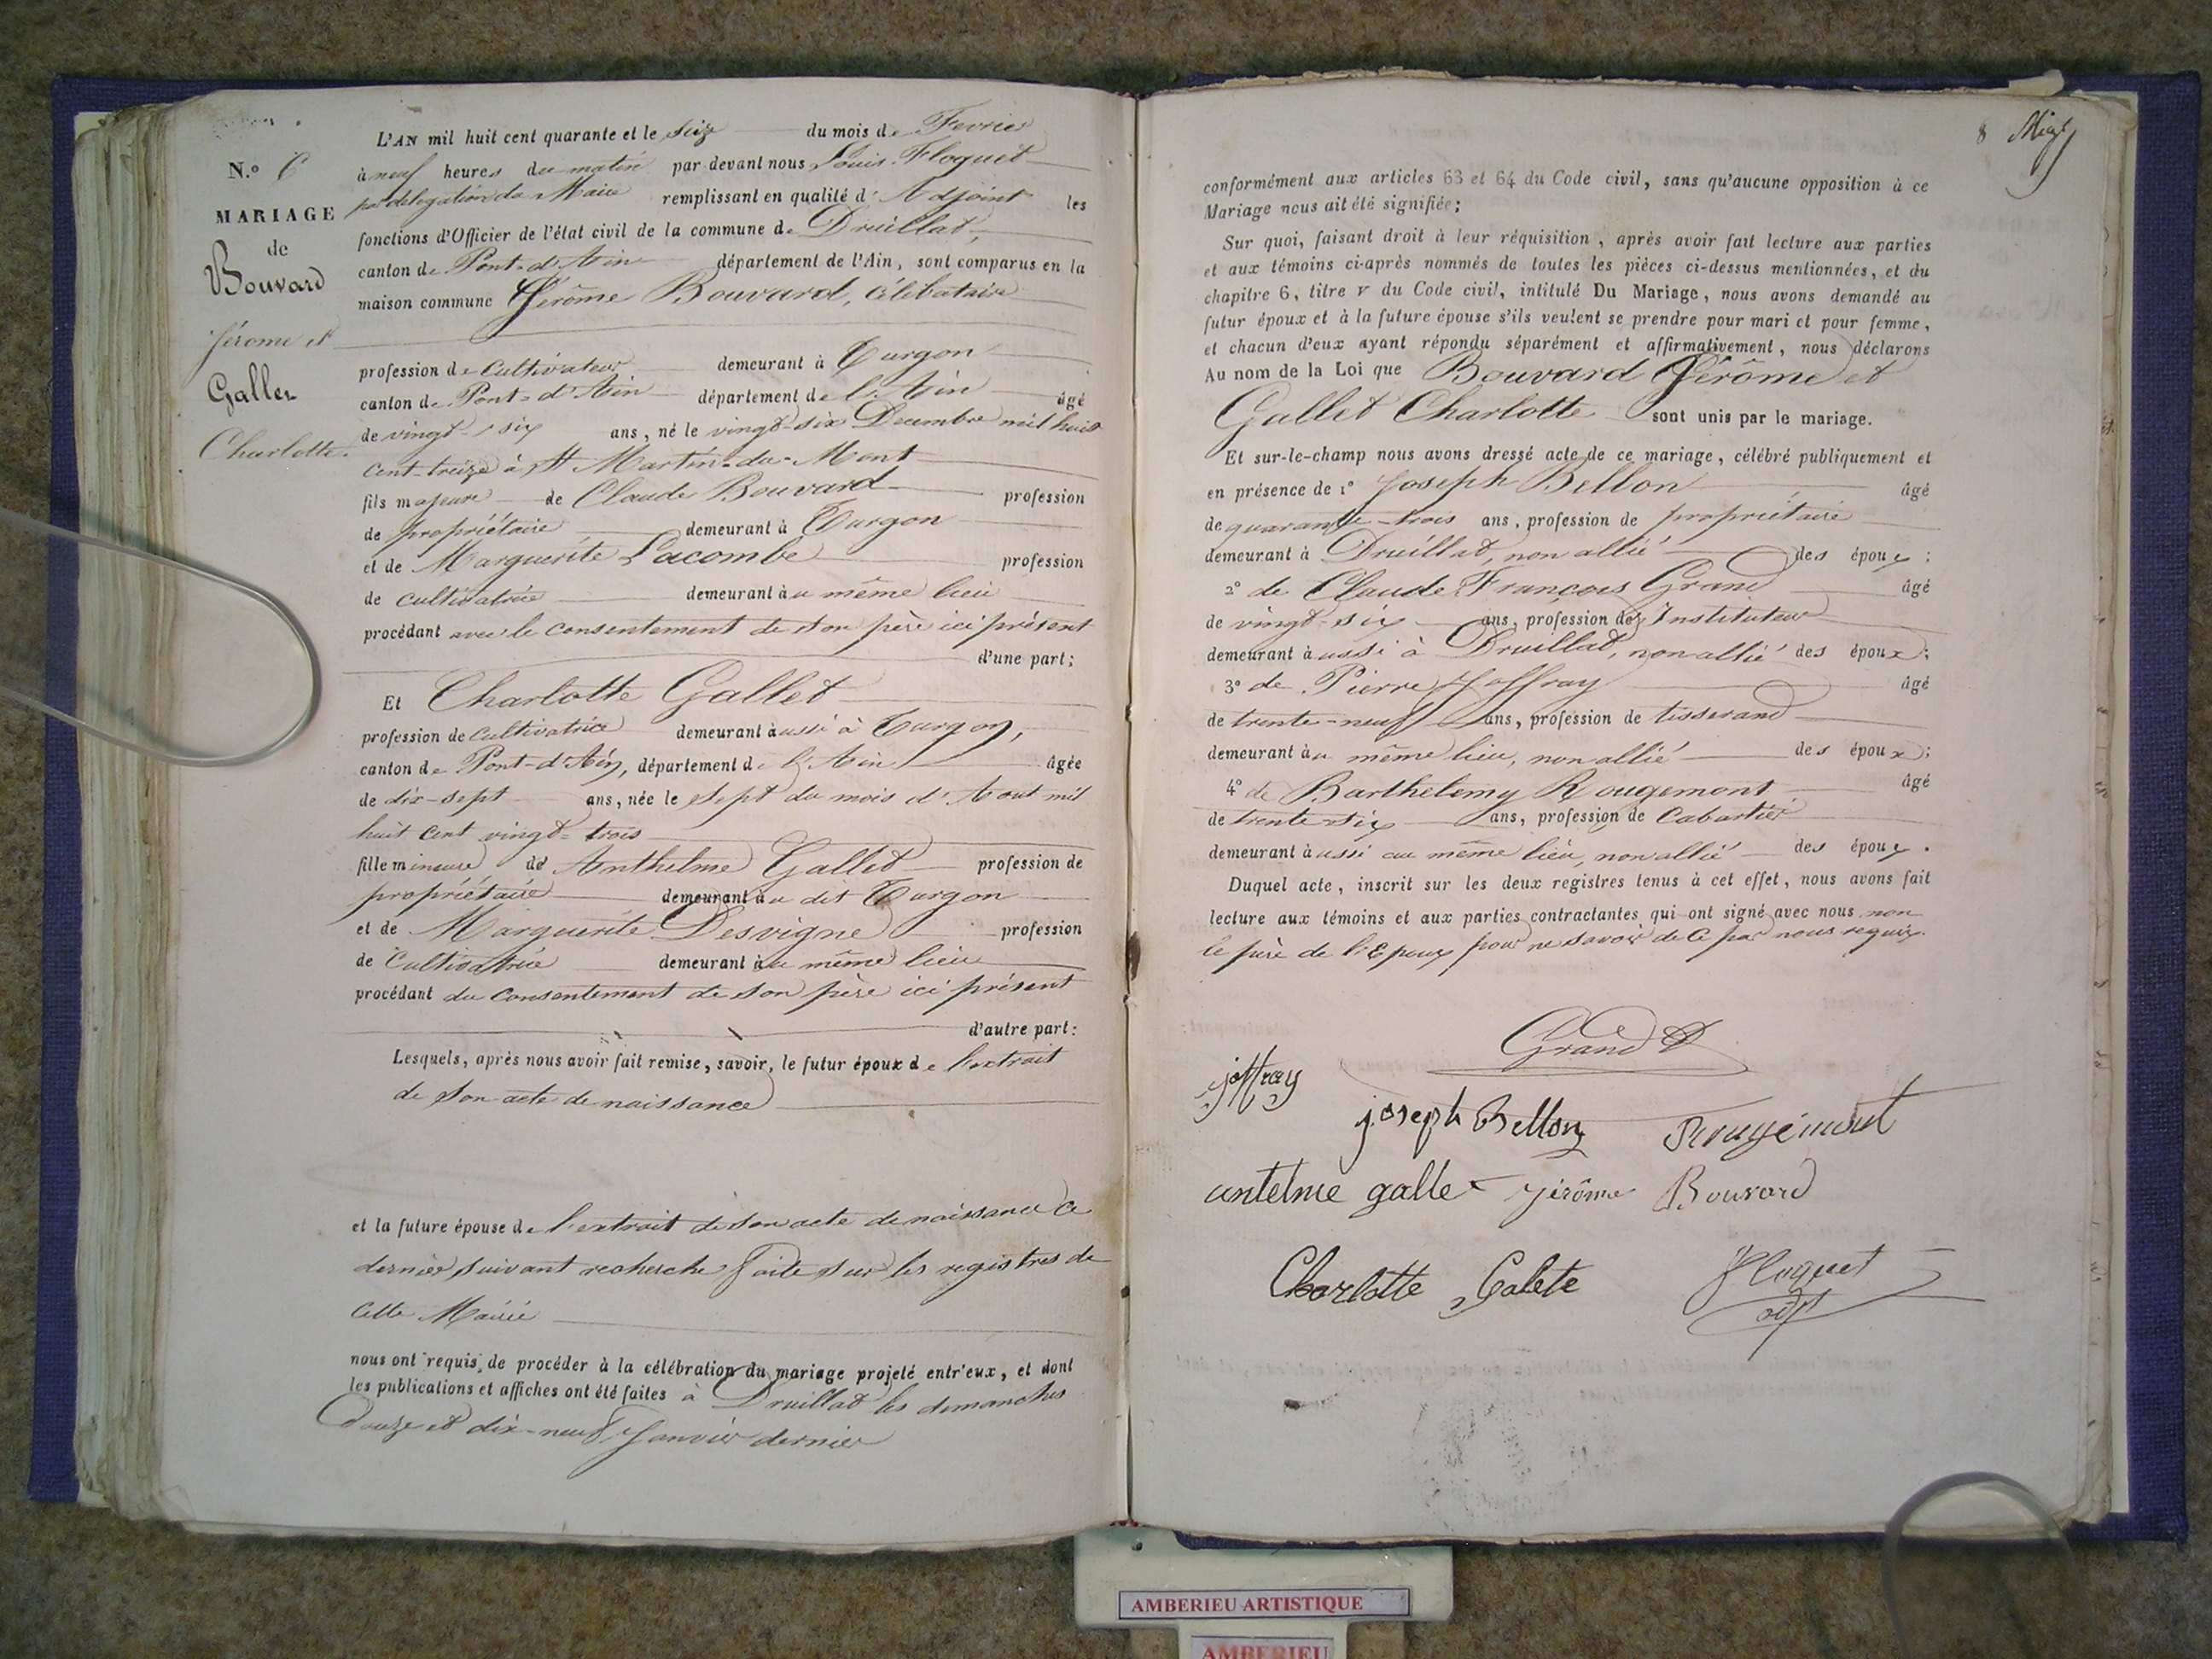 N.° 6
MARIAGE
de
Bouvard
Jérome et
Gallet
Charlotte.
L'AN mil huit cent quarante et le seize du mois de Fevrier
à neuf heures du matin par devant nous Louis Floquet
par délégation du Maire remplissant en qualité d'Adjoint les
fonctions d'Officier de l'état civil de la commune de Druillat,
canton de Pont-d'Ain département de l'Ain, sont comparus en la
maison commune Jérôme Bouvard, célibataire
profession de Cultivateur demeurant à Turgon
canton de Pont-d'Ain département de l'Ain âgé
de vingt-six ans, né le vingt-six Decembre mil huit
cent treize à St Martin-du-Mont
fils majeur de Claude Bouvard profession
de propriétaire demeurant à Turgon
et de Marguerite Lacombe profession
de cultivatrice demeurant au même lieu
procédant avec le consentement de son père ici présent
d'une part;
Et Charlotte Gallet
profession de Cultivatrice demeurant aussi à Turgon,
canton de Pont-d'Ain, département de l'Ain âgée
de dix-sept ans, née le sept du mois d'Aout mil
huit cent vingt-trois
fille mineure de Anthelme Gallet profession de
propriétaire demeurant au dit Turgon
et de Marguerite Desvigne profession
de Cultivatrice demeurant au même lieu
procédant du consentement de son père ici présent
d'autre part:
Lesquels, après nous avoir fait remise, savoir, le futur époux de l'extrait
de son acte de naissance
et la future épouse de l'extrait de son acte de naissance ce
dernier suivant recherche faite sur les registres de
cette Mairie
nous ont requis de procéder à la célébration du mariage projeté entr'eux, et dont
les publications et affiches ont été faites à Druillat les dimanches
douze et dix-neuf Janvier dernier
8
conformément aux articles 63 et 64 du Code civil, sans qu'aucune opposition à ce
Mariage nous ait été signifiée;
Sur quoi, faisant droit à leur réquisition, après avoir fait lecture aux parties
et aux témoins ci-après nommés de toutes les pièces ci-dessus mentionnées, et du
chapitre 6, titre v du Code civil, intitulé Du Mariage, nous avons demandé au
futur époux et à la future épouse s'ils veulent se prendre pour mari et pour femme,
et chacun d'eux ayant répondu séparément et affirmativement, nous déclarons
Au nom de la Loi que Bouvard Jérôme et
Gallet Charlotte sont unis par le mariage.
Et sur-le-champ nous avons dressé acte de ce mariage, célébré publiquement et
en présence de 1° Joseph Bellon âgé
de quarante-trois ans, profession de propriétaire
demeurant à Druillat, non allié des époux;
2° de Claude François Grand âgé
de vingt-six ans, profession de Instituteur
demeurant aussi à Druillat, non allié des époux;
3° de Pierre Joffray âgé
de trente-neuf ans, profession de tisserand
demeurant au même lieu, non allié des époux;
4° de Barthelemy Rougemont âgé
de trente six ans, profession de Cabartier
demeurant aussi au même lieu, non allié des époux.
Duquel acte, inscrit sur les deux registres tenus à cet effet, nous avons fait
lecture aux témoins et aux parties contractantes qui ont signé avec nous non
le père de l'Epoux pour ne savoir de ce par nous requis.
Grand
joffray
joseph Bellon
Rougémont
antelme gallet
Jérôme Bouvard
Charlotte Galete
Floquet
adjt
AMBERIEU ARTISTIQUE
AMBERIEU